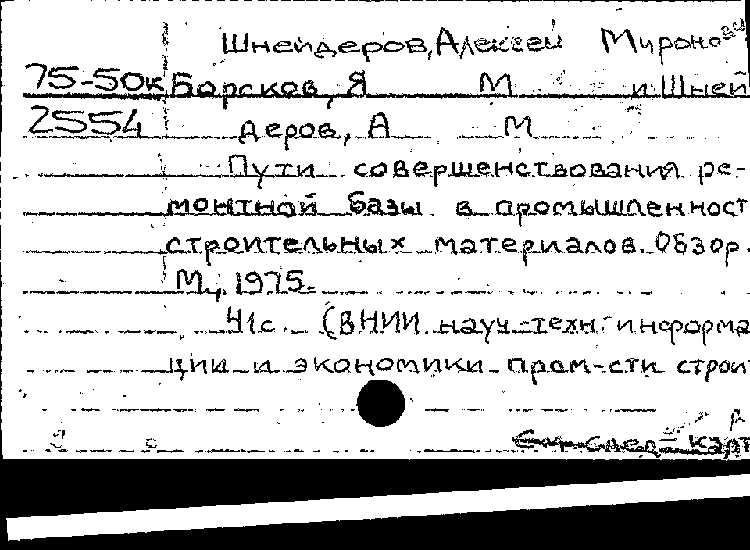 Шнейдеров, Алексей Миронович
75-50к Борсков, Я М и Шней
2554 деров, А М
Пути совершенствования ре-
монтной базы в промышленност
строительных материалов. Обзор.
М., 1975.
41с. (ВНИИ науч.-техн. информа
ции и экономики пром-сти строи
См. след. карт